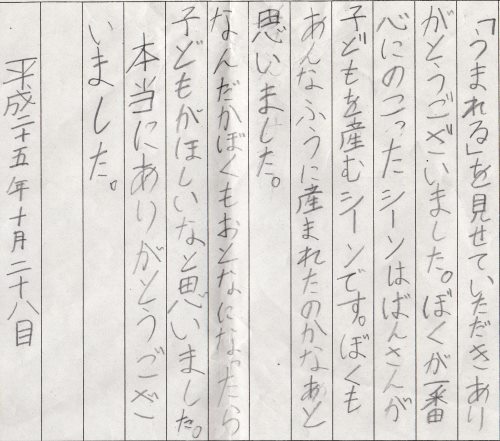 「うまれる」を見せていただきあり
がとうございました。ぼくが一番
心にのこったシーンはばんさんが
子どもを産むシーンです。ぼくも
あんなふうに産まれたのかなぁと
思いました。
なんだかぼくもおとなになったら
子どもがほしいなと思いました。
本当にありがとうござ
いました。
平成二十五年十月二十八日